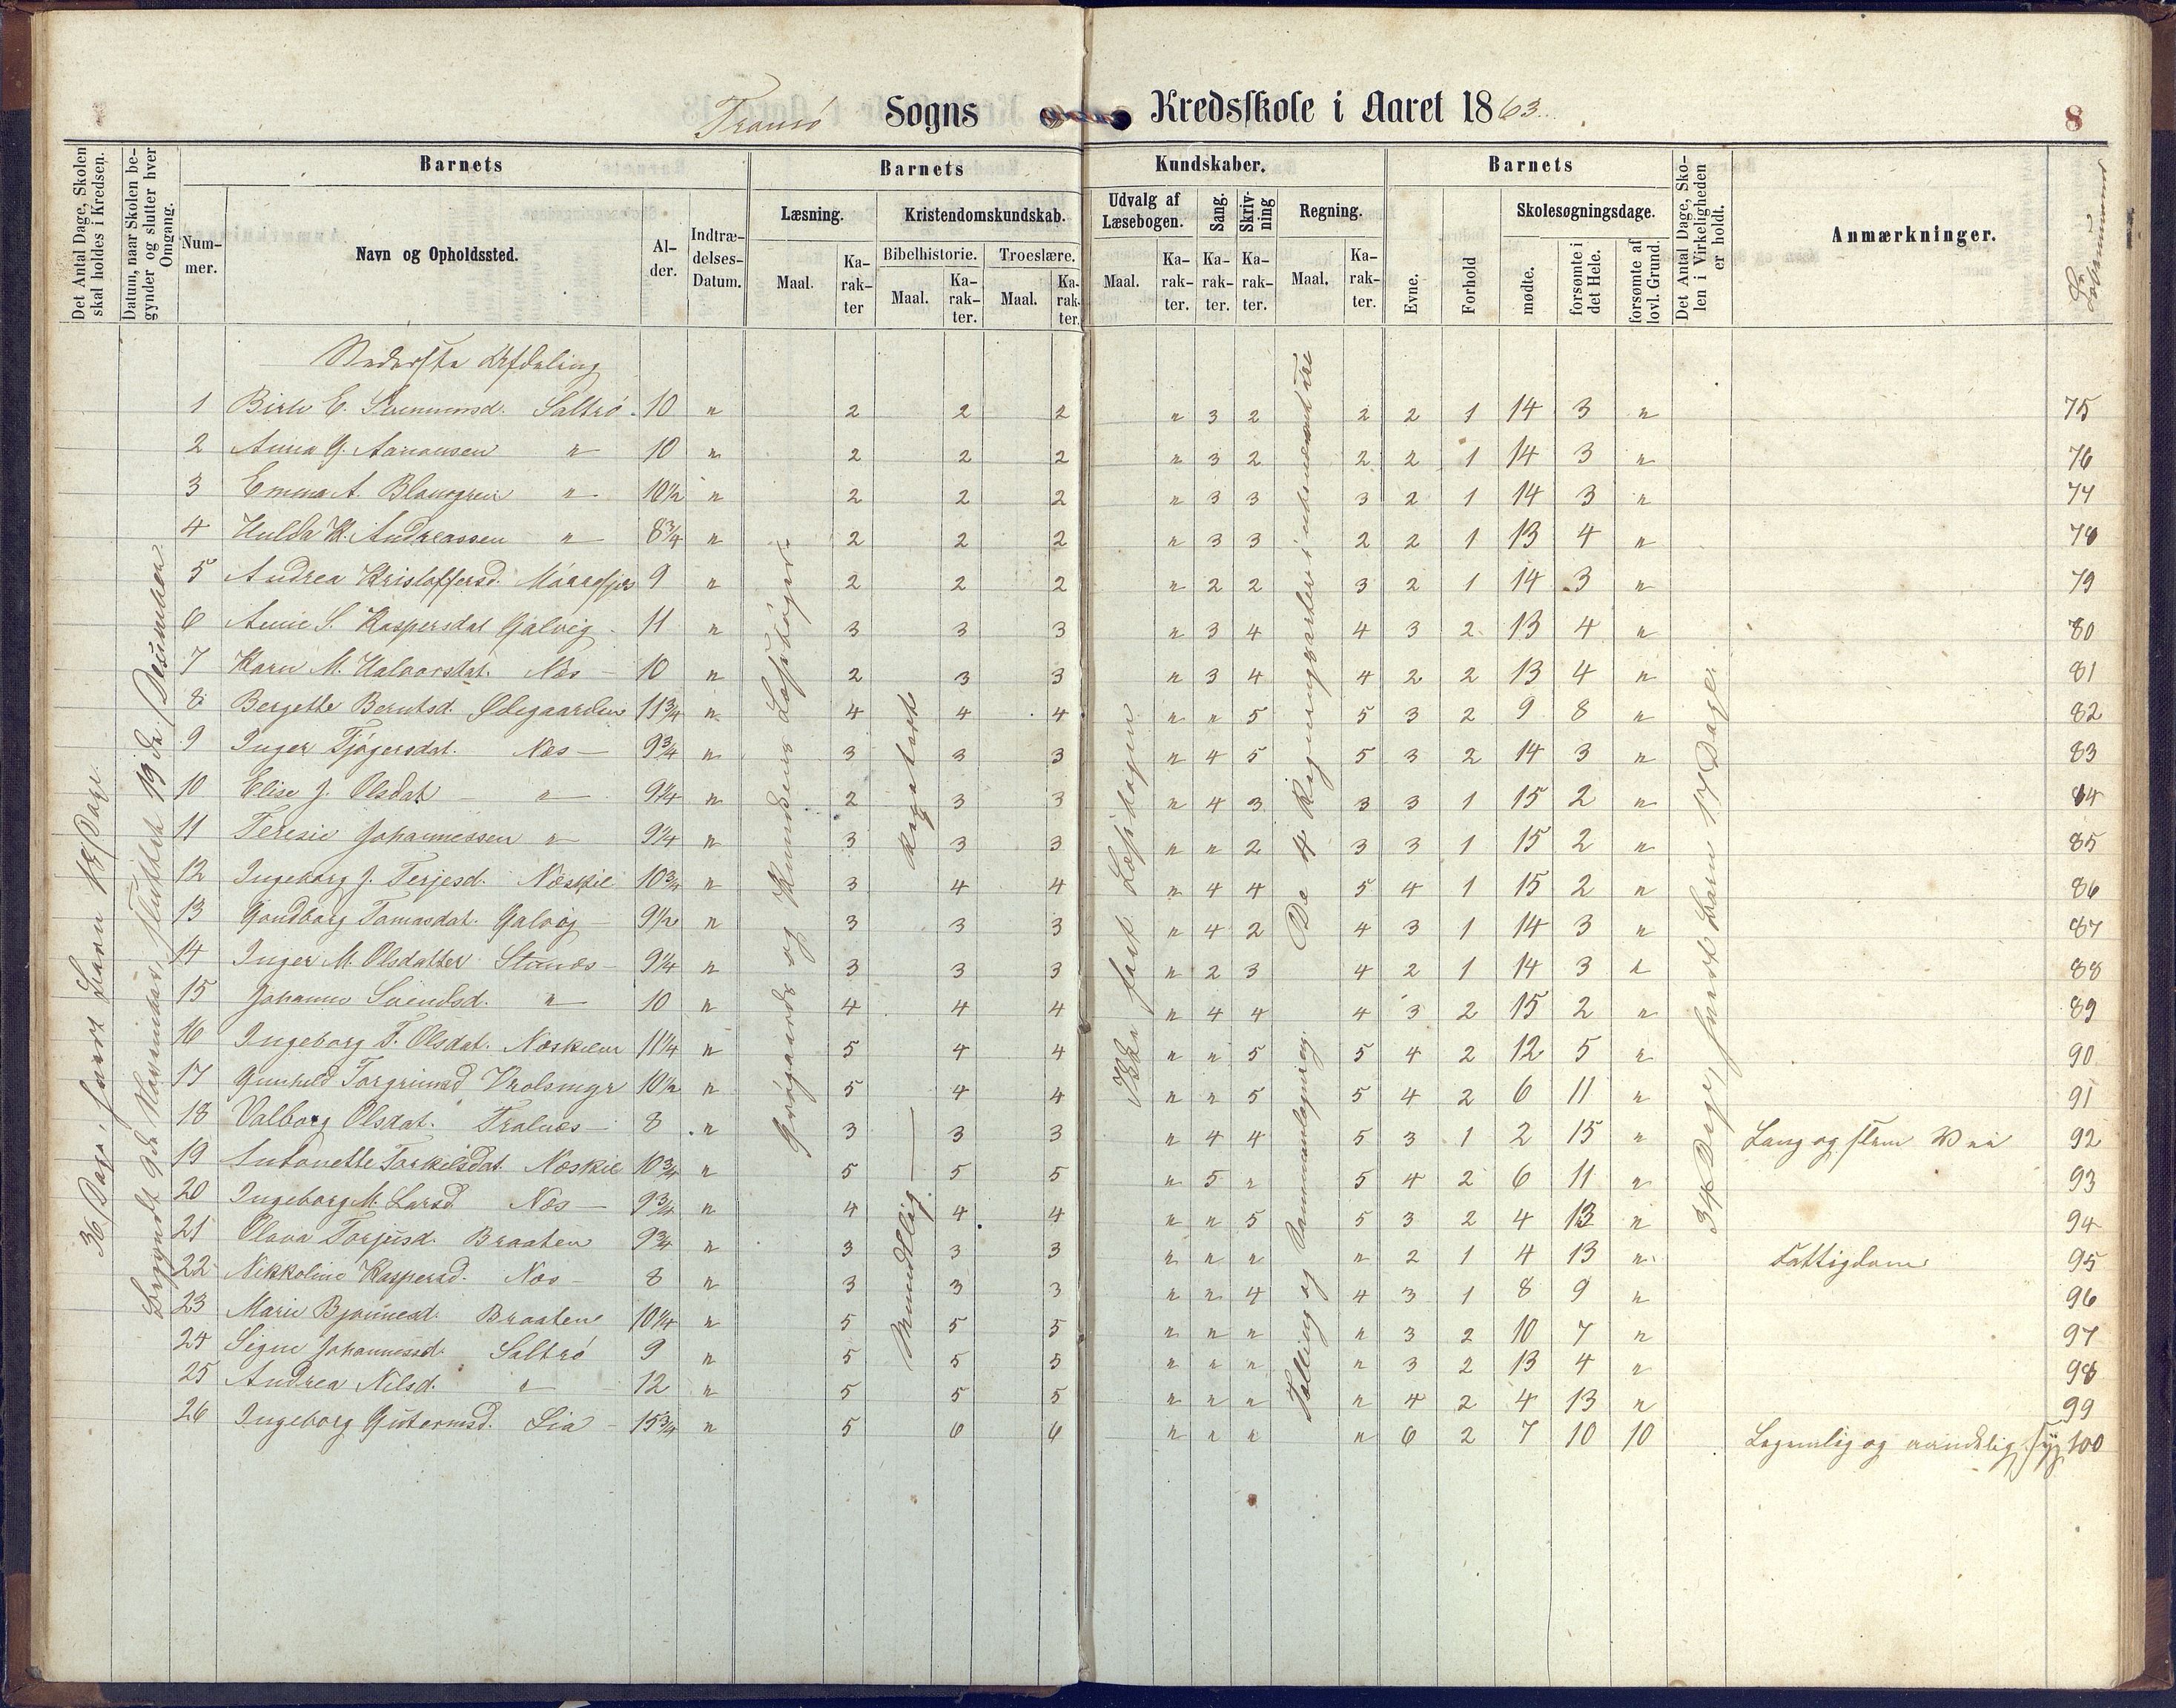 Tromø Sogns Kredsskole i Aaret 1863.
8
Det Antal Dage, Skolen skal holdes i Kredsen.
Datum, naar Skolen begynder og slutter hver Omgang.
Barnets
Barnets
Kundskaber.
Barnets
Det Antal Dage, Skolen i Virkeligheden er holdt.
Anmærkninger.
Nummer.
Navn og Opholdssted.
Alder.
Indtrædelses-Datum.
Læsning.
Kristendomskundskab.
Udvalg af Læsebogen.
Sang.
Skrivning
Regning.
Evne.
Forhold
Skolesøgningsdage.
Bibelhistorie.
Troeslære.
Maal.
Karakter
Maal.
Karakter.
Maal.
Karakter.
Maal.
Karakter.
Karakter.
Karakter.
Maal.
Karakter.
mødte.
forsømte i det Hele.
forsømte af lovl. Grund.
Nederste Afdeling
1 Birte E. Svennumsd. Saltrø 10 " 2 2 2 " 3 2 2 2 1 14 3 " 75
2 Anna G. Aanonsen " 10 " 2 2 2 " 3 2 2 2 1 14 3 " 76
3 Emma A. Blomgren " 10½ " 2 2 2 " 3 3 3 2 1 14 3 " 77
4 Hulda K. Andreassen " 8¾ " 2 2 2 " 3 3 2 2 1 13 4 " 78
5 Andrea Kristoffersd. 9 " 2 2 2 " 2 2 3 2 1 14 3 " 79
6 Anne S. Kaspersdat Galvig 11 " 3 3 3 " 3 4 4 3 2 13 4 " 80
7 Karn M. Halvorsdat. Næs 10 " 2 3 3 " 3 4 4 2 2 13 4 " 81
8 Bergette Berntsd. Ødegaarden 11¾ " 4 4 4 " " 5 5 3 2 9 8 " 82
9 Inger Tjøgersdat. Næs 9¾ " 3 3 3 " 4 5 5 3 2 14 3 " 83
10 Elise J. Olsdat " 9¼ " 2 3 3 " 4 3 3 3 1 15 2 " 84
11 Teresie Johannessen " 9¼ " 3 3 3 " " 2 3 3 1 15 2 " 85
12 Ingeborg J. Terjesd. Næskil 10¾ " 3 4 4 " 4 4 5 4 1 15 2 " 86
13 Gondborg Tomasdat. Galvig 9½ " 3 3 3 " 4 2 4 3 1 14 3 " 87
14 Inger M. Olsdatter Stunæs 9¼ " 3 3 3 " 2 3 4 2 1 14 3 " 88
15 Johanne Svendsd. " 10 " 4 4 4 " 4 4 4 3 2 15 2 " 89
16 Ingeborg T. Olsdat. Næskilen 11¼ " 5 4 4 " " 5 5 4 2 12 5 " 90
17 Gunhild Torgrimsd Vrolsmyr 10½ " 5 4 4 " " 5 5 4 2 6 11 " 91
18 Valborg Olsdat. Tralnæs 8 " 3 3 3 " 4 4 5 3 1 2 15 " Lang og slem Vei 92
19 Antonette Torkelsdat. Næskil 10¾ " 5 5 5 " 5 " 5 4 2 6 11 " 93
20 Ingeborg M. Larsd Næs 9¾ " 4 4 4 " " 5 5 3 2 4 13 " 94
21 Olava Torjusd. Braaten 9¾ " 3 3 3 " " " " 2 1 4 13 " Fattigdom 95
22 Nikkoline Kaspersd. Næs 8 " 3 3 3 " " 4 4 3 1 8 9 " 96
23 Marie Bjønnesd. Braaten 10¼ " 5 5 5 " " " " 3 2 10 7 " 97
24 Signe Johannessd. Saltrø 9 " 5 5 5 " " " " 3 2 13 4 " 98
25 Andrea Nilsd. " 12 " 5 5 5 " " " " 4 2 4 13 " 99
26 Ingeborg Guttormsd. Lia 15¾ " 5 6 6 " " " " 6 2 7 10 10 Legemlig og aandelig syg 100
36 Dage, hvert Barn 18 Dage.
Begyndt 9de November, sluttet 19de December
Grøgaards og Knudsens Læsebøger
Mundtlig
Ikke fast Læsebogen
Tælling og Sammenlægning. De 4 Regningsarter i ubenævnte Tal
34 Dage, hvert Barn 17 Dage.